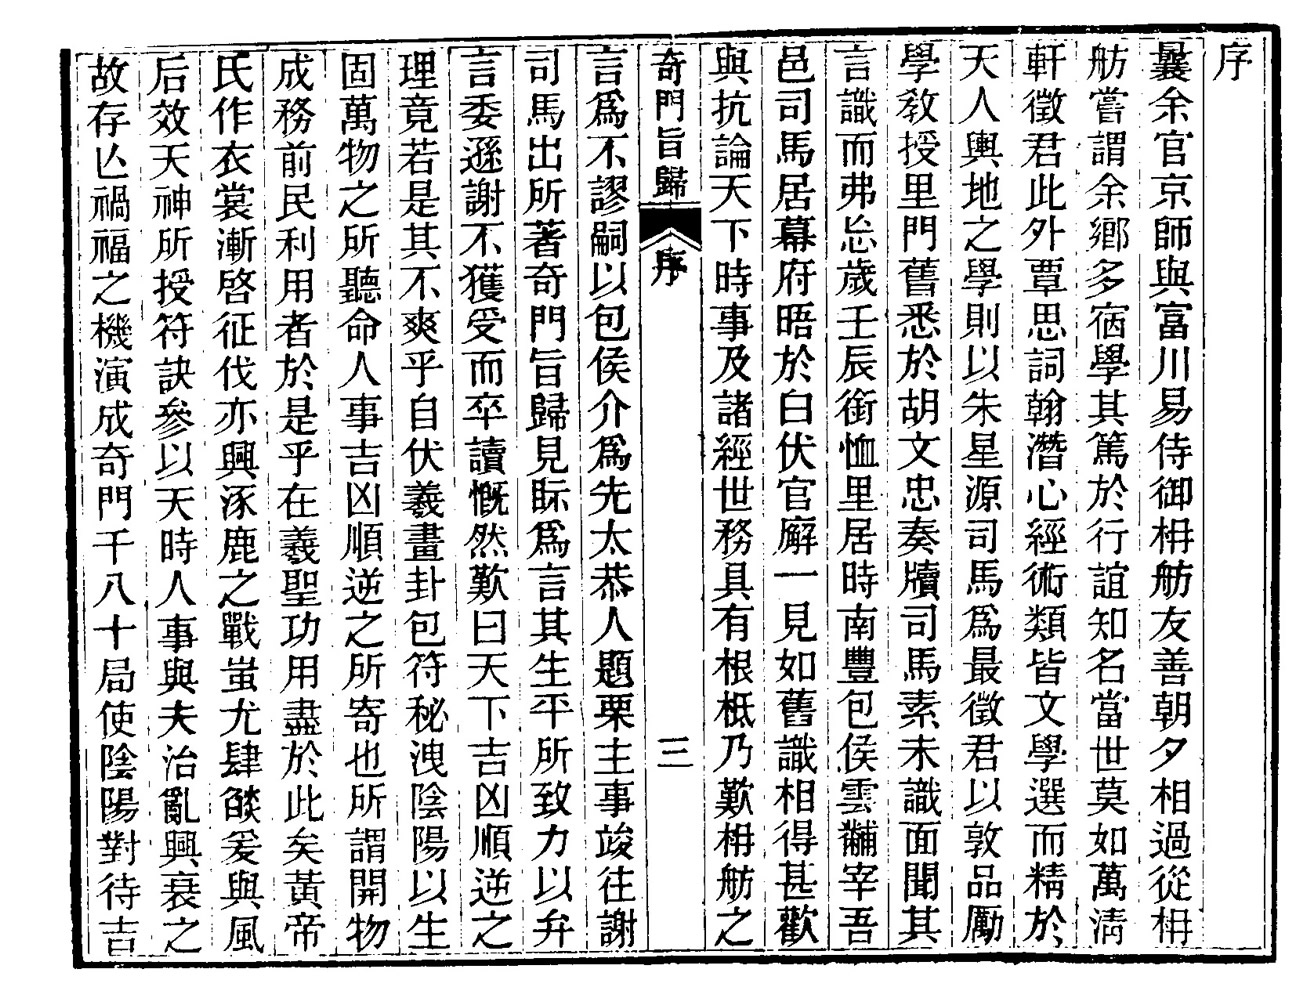 序
曩余官京師與富川易侍御枏舫友善朝夕相過從枏
舫嘗謂余鄉多宿學其篤於行誼知名當世莫如萬清
軒徵君此外覃思詞翰潛心經術類皆文學選而精於
天人輿地之學則以朱星源司馬爲最徵君以敦品勵
學敎授里門舊悉於胡文忠奏牘司馬素未識面聞其
言識而弗忘歲壬辰銜恤里居時南豐包侯雲黼宰吾
邑司馬居幕府晤於白伏官廨一見如舊識相得甚歡
與抗論天下時事及諸經世務具有根柢乃歎枏舫之
奇門旨歸 序 三
言爲不謬嗣以包侯介爲先太恭人題栗主事竣往謝
司馬出所著奇門旨歸見眎爲言其生平所致力以弁
言委遜謝不獲受而卒讀慨然歎曰天下吉凶順逆之
理竟若是其不爽乎自伏羲畫卦包符秘洩陰陽以生
固萬物之所聽命人事吉凶順逆之所寄也所謂開物
成務前民利用者於是乎在羲聖功用盡於此矣黃帝
氏作衣裳漸啓征伐亦興涿鹿之戰蚩尤肆燄爰與風
后效天神所授符訣參以天時人事與夫治亂興衰之
故存亾禍福之機演成奇門千八十局使陰陽對待吉